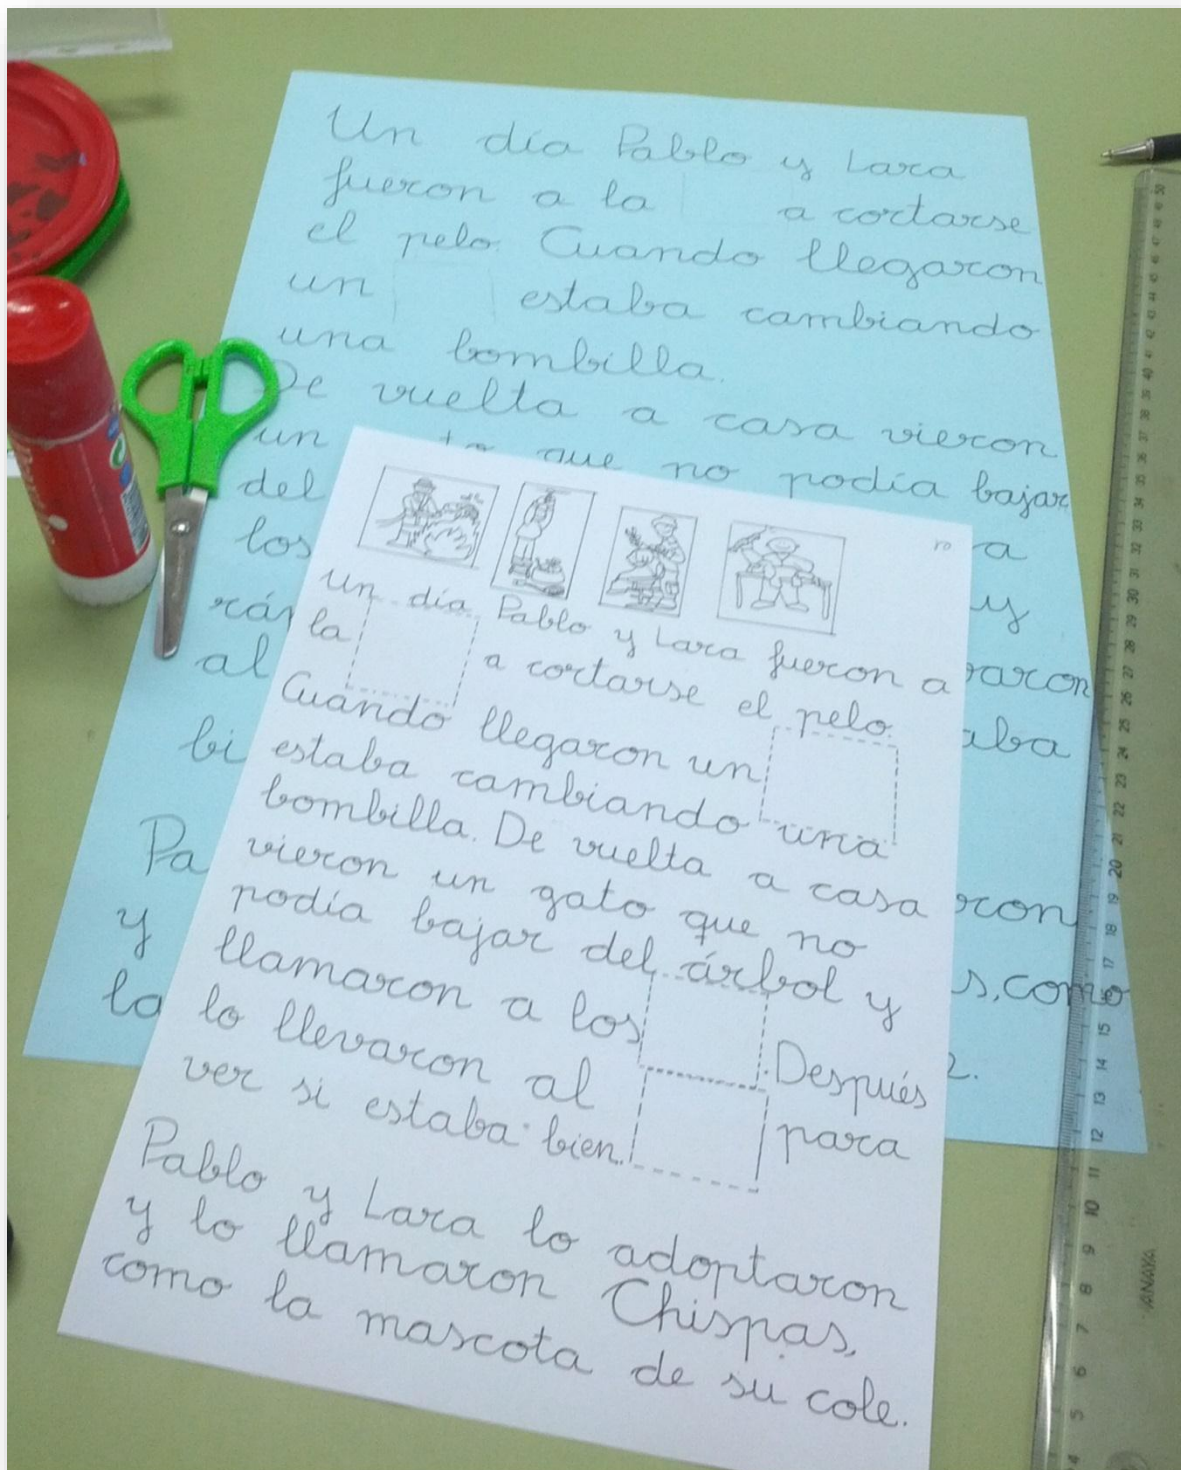 Un día Pablo y Lara
fueron a la a cortarse
el pelo. Cuando llegaron
un estaba cambiando
una bombilla.
De vuelta a casa vieron
un que no podía bajar
del
los a
y
al
bi
Pa
y s, como
la
Un día Pablo y Lara fueron a
la a cortarse el pelo.
Cuando llegaron un
estaba cambiando una
bombilla. De vuelta a casa
vieron un gato que no
podía bajar del árbol y
llamaron a los . Después
lo llevaron al para
ver si estaba bien.
Pablo y Lara lo adoptaron
y lo llamaron Chispas,
como la mascota de su cole.
ANAYA
50
32
31
30
29
28
27
26
25
24
23
22
21
20
19
18
17
16
15
14
13
12
11
10
9
8
7
6
5
4